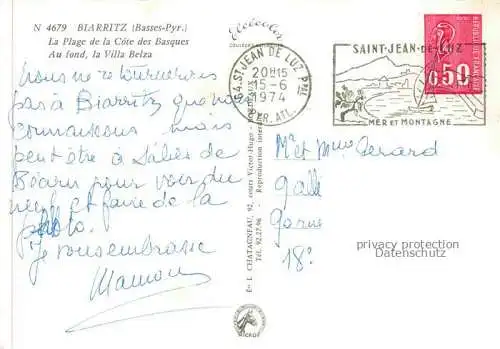 N 4679 BIARRITZ (Basses-Pyr.)
La Plage de la Côte des Basques
Au fond, la Villa Belza
nous ne retournerons
pas à Biarritz que
connaissons mais
peut être à Salies de
Béarn pour voir du
neuf et faire de la
photo.
Je vous embrasse
Maman
Elcécolor
64 ST JEAN DE LUZ PPAL
20H15
15-6
1974
PYR. ATL.
SAINT-JEAN-DE-LUZ
MER ET MONTAGNE
0,50
Éts L. CHATAGNEAU, 92, cours Victor-Hugo - BORDEAUX
Tél. 92.27.96 - Reproduction inter
Mr et Mme Gerard
Galle
18e
privacy protection
Datenschutz